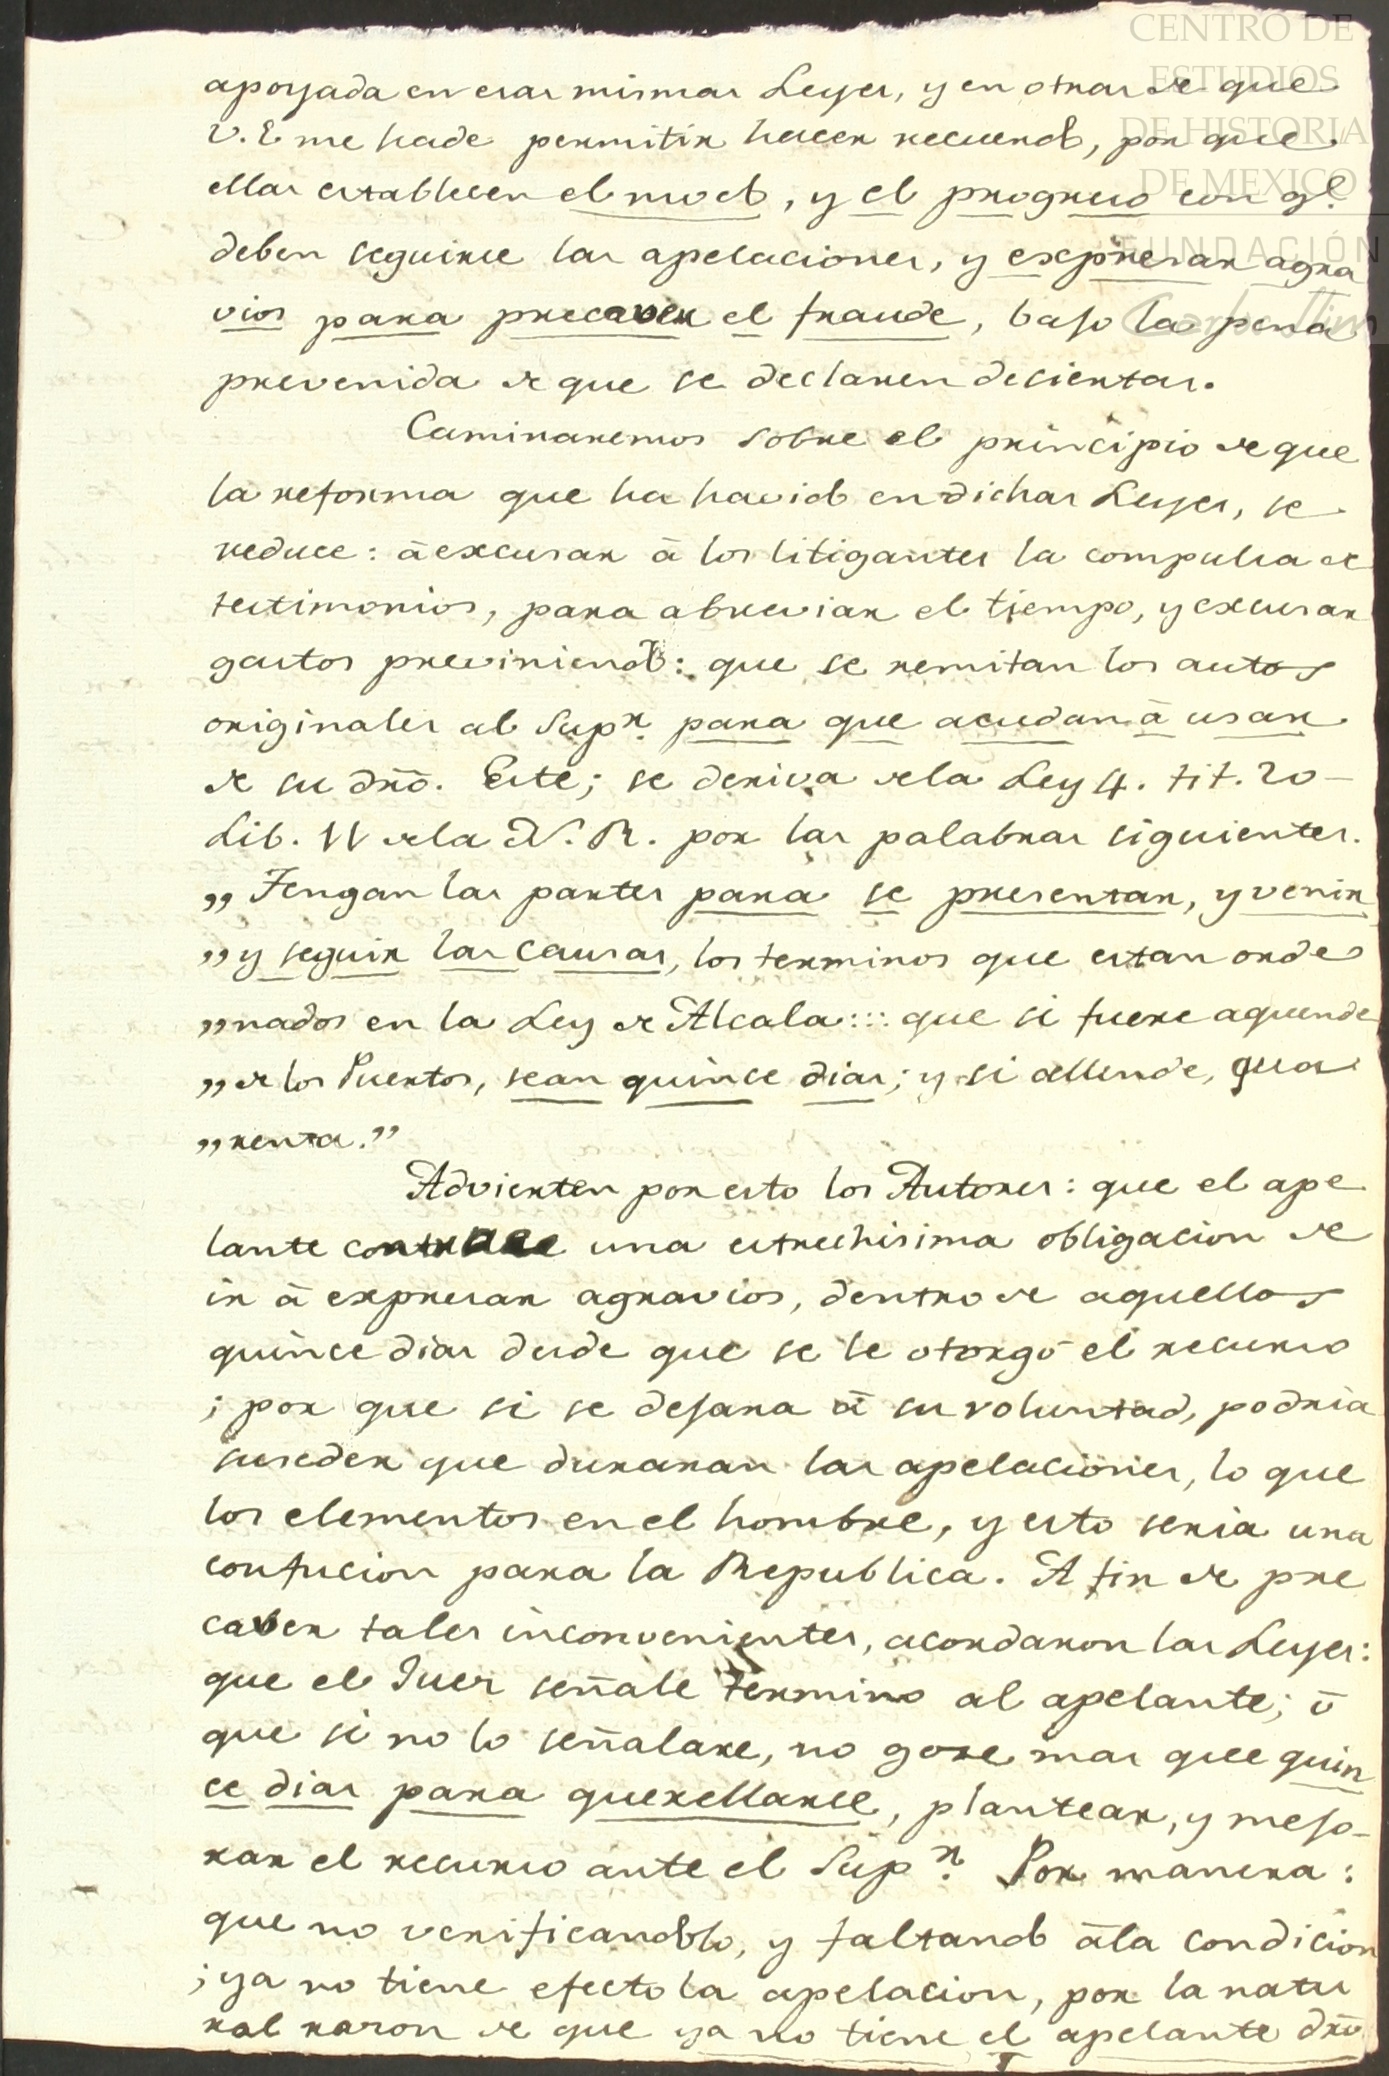 CENTRO DE
ESTUDIOS
DE HISTORIA
DE MEXICO
FUNDACIÓN
Carlos Slim
apoyada en esas mismas Leyes, y en otras de que
V. E me hade permitir hacer recuerdo, por que
ellas establecen el modo, y el progreso con q.e
deben seguirse las apelaciones, y expresar agra
vios para precaver el fraude, bajo la pena
prevenida de que se declaren deciertas.
Caminaremos sobre el principio de que
la reforma que ha havido en dichas Leyes, se
reduce: á excusar á los litigantes la compulsa de
testimonios, para abreviar el tiempo, y excusar
gastos previniendo: que se remitan los autos
originales al Sup.r para que acudan á usar
de su dño. Este; se deriva de la Ley 4. tit. 20 -
Lib. 11 de la N. R. por las palabras siguientes.
„ Tengan las partes para se presentar, y venir
„ y seguir las causas, los terminos que estan orde
„ nados en la Ley de Alcala::: que si fuere aquende
„ de los Puertos, sean quince dias; y si allende, qua
„ renta.”
Advierten por esto los Autores: que el ape
lante contrae una estrechisima obligacion de
ir á expresar agravios, dentro de aquellos
quince dias desde que se le otorgó el recurso
; por que si se dejara á su voluntad, podria
suseder que duraran las apelaciones, lo que
los elementos en el hombre, y esto seria una
confucion para la Republica. A fin de pre
caver tales inconvenientes, acordaron las Leyes:
que el Juez señale termino al apelante; ó
que si no lo señalare, no gose mas que quin
ce dias para querellarse, plantear, y mejo-
rar el recurso ante el Sup.r Por manera:
que no verificandolo, y faltando á la condicion
; ya no tiene efecto la apelacion, por la natu
ral razon de que ya no tiene el apelante dro